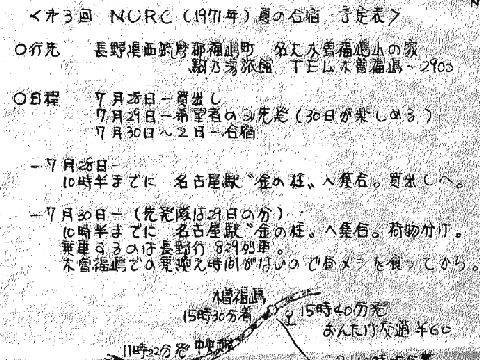 <第3回 NURC (1971年) 夏の合宿 予定表>
○行先 長野県西筑摩郡福島町 木曽福島山の家
駒の湯旅館 TEL木曽福島-2903
○日程 7月28日-買出し
7月29日-希望者のみ先発(30日が楽しめる)
7月30日~2日-合宿
-7月28日-
10時半までに 名古屋駅〝金の柱〟へ集合。買出しへ。
-7月30日-(先発隊は29日の分)
10時半までに 名古屋駅〝金の柱〟へ集合。荷物分け。
乗車するのは長野行 829列車。
木曽福島での乗換え時間がないので昼メシを食ってから。
木曽福島
15時30分着 15時40分発
おんたけ交通
11時22分発 中央線